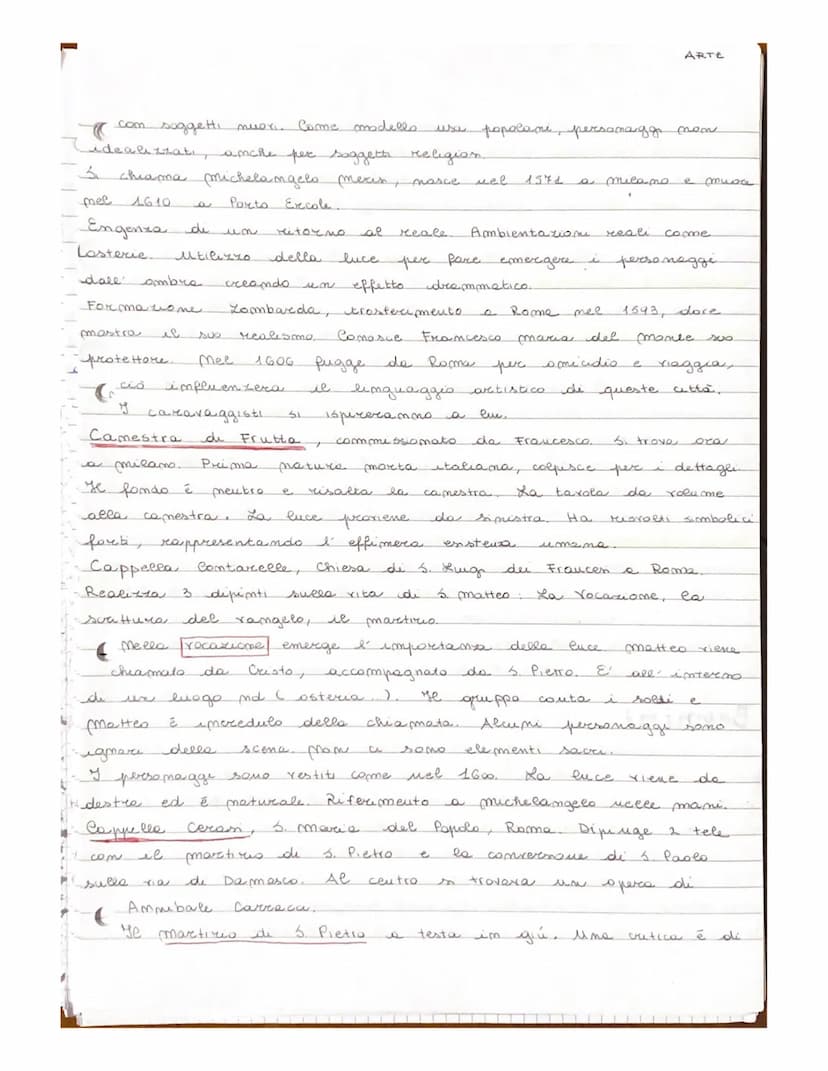 ARTE
con soggetti nuovi. Come modello usa popolani, personaggi non
idealizzati, anche per soggetti religiosi.
Si chiama Michelangelo Merisi, nasce nel 1571 a Milano e muore
nel 1610 a Porto Ercole.
Esigenza di un ritorno al reale. Ambientazioni reali come
l'osterie. Utilizzo della luce per fare emergere i personaggi
dall'ombra creando un effetto drammatico.
Formazione Lombarda, trasferimento a Roma nel 1593, dove
mostra il suo realismo. Conosce Francesco Maria del Monte suo
protettore. Nel 1606 fugge da Roma per omicidio e viaggia,
ciò influenzerà il linguaggio artistico di queste città.
I caravaggisti si ispireranno a lui.
Canestra di Frutta, commissionato da Francesco. Si trova ora
a Milano. Prima natura morta italiana, colpisce per i dettagli
Il fondo è neutro e risalta la canestra. La tavola da volume
alla canestra. La luce proviene da sinistra. Ha risvolti simbolici
forti, rappresentando l'effimera esistenza umana.
Cappella Contarelle, Chiesa di S. Luigi dei Francesi a Roma.
Realizza 3 dipinti sulla vita di S. Matteo: La Vocazione, la
scrittura del vangelo, il martirio.
Nella vocazione emerge l'importanza della luce. Matteo viene
chiamato da Cristo, accompagnato da S. Pietro. E' all'interno
di un luogo nd (osteria..). Il gruppo conta i soldi e
Matteo è incredulo della chiamata. Alcuni personaggi sono
ignari della scena. Non ci sono elementi sacri.
I personaggi sono vestiti come nel 1600. La luce viene da
destra ed è naturale. Riferimento a Michelangelo nelle mani.
Cappella Cerasi, S. Maria del Popolo, Roma. Dipinge 2 tele
con il martirio di S. Pietro e la conversione di S. Paolo
sulla via di Damasco. Al centro si trovava un opera di
Annibale Carracci.
Il martirio di S. Pietro a testa in giù. Una critica è di